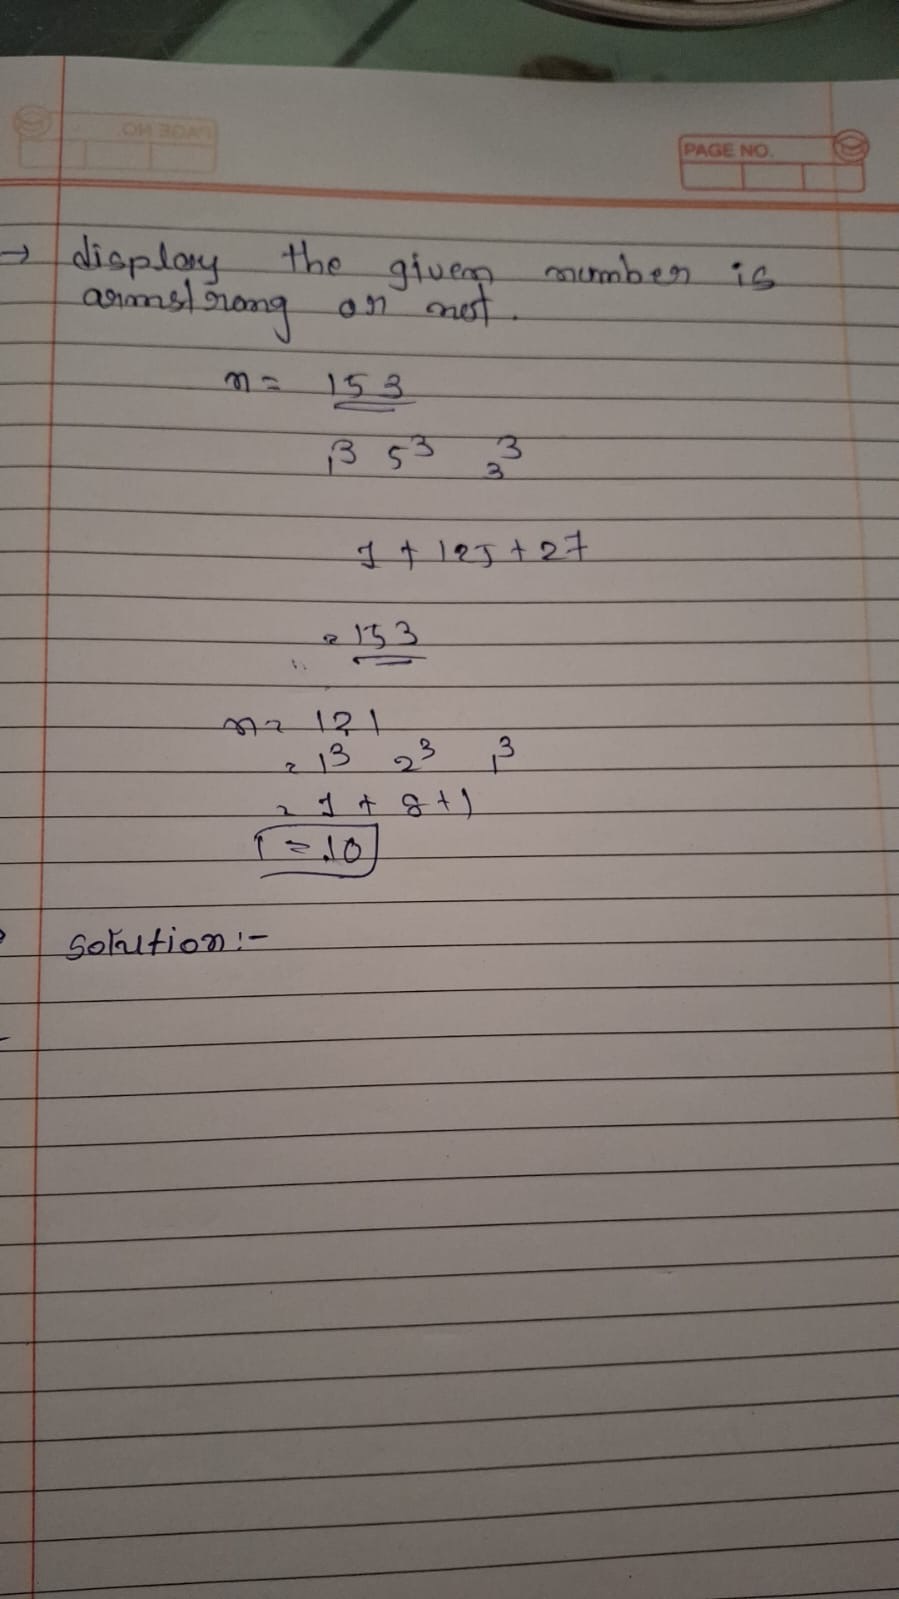 PAGE NO.
→ display the given number is
armstrong or not.
n = 153
1³ 5³ 3³
1 + 125 + 27
= 153
n = 121
= 1³ 2³ 1³
= 1 + 8 + 1
= 10
Solution :-